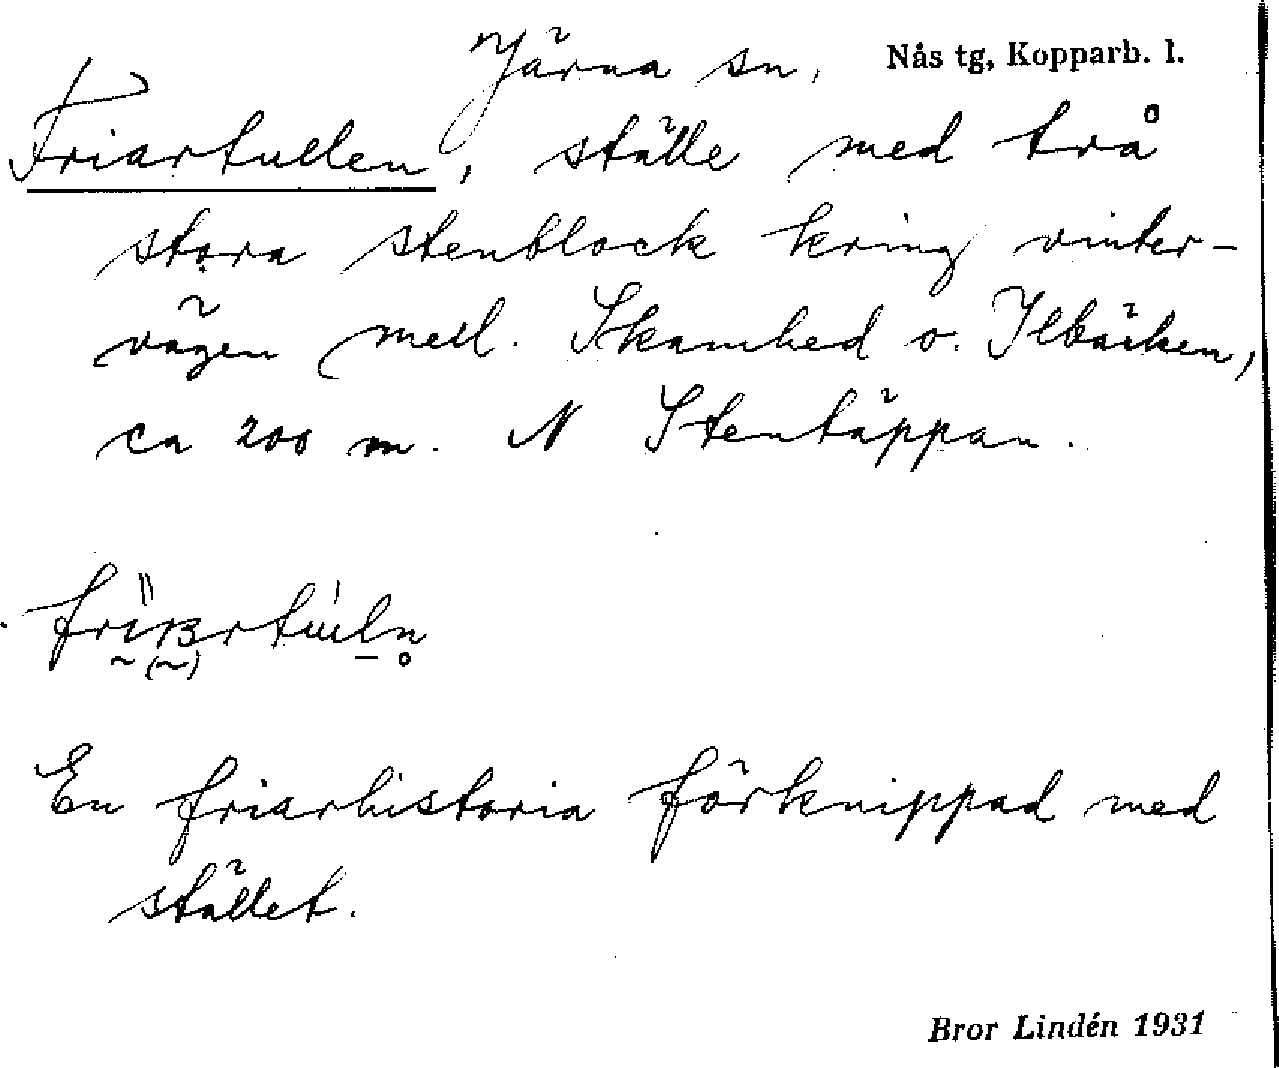 Järna sn. Nås tg, Kopparb. l.
Friartullen, ställe med två
stora stenblock kring vinter-
vägen mell. Skamhed o. Ilbäcken,
ca 200 m. N Stentäppan.
En friarhistoria förknippad med
stället.
Bror Lindén 1931